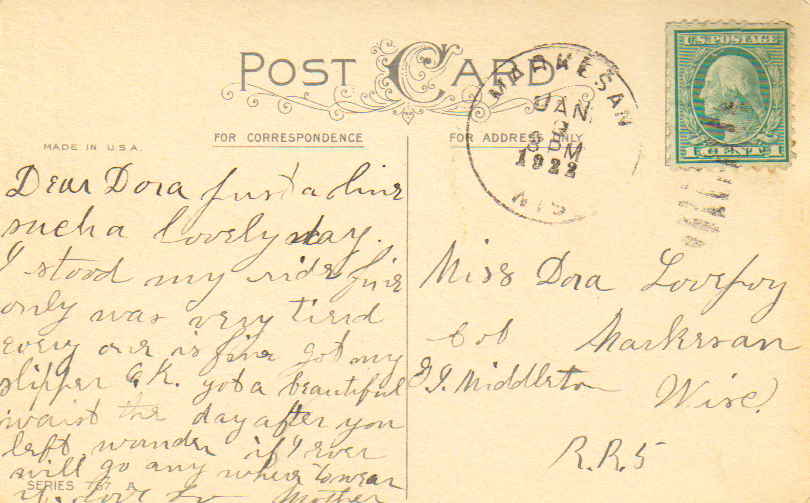 POST CARD
FOR CORRESPONDENCE
FOR ADDRESS ONLY
MADE IN U.S.A.
MARKESAN
JAN
3 PM
1922
WIS
U.S. POSTAGE
CENTS
Dear Dora just a line
such a lovely day.
I stood my ride fine
only was very tierd
every one is fine got my
slipper O.K. got a beautiful
waist the day after you
left, wonder if I ever
will go any where to wear
it. love to Mother
Miss Dora
Markesan
G. J. Middleton
Wisc.
R.R.5
SERIES 767 A